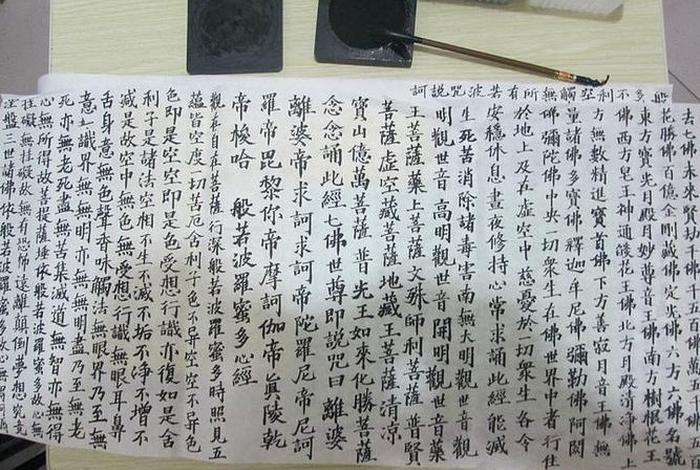 般多不利空觸無所有苦波咒說訶
去七佛未來賢劫千佛
花勝佛百億金剛藏佛定光佛六方六佛名號
東方寶光月殿月妙尊音王佛南方樹根花王
佛西方皂王神通燄花王佛北方月殿清淨佛上
方無數精進寶首佛下方善寂月音王佛無
量諸佛多寶佛釋迦牟尼佛彌勒佛阿閦
佛彌陀佛中央一切衆生在佛世界中者行住
於地上及在虛空中慈憂於一切衆生各令
安穩休息晝夜修持心常求誦此經能滅
生死苦消除諸毒害南無大明觀世音觀
明觀世音高明觀世音開明觀世音藥
王菩薩藥上菩薩文殊師利菩薩普賢
菩薩虛空藏菩薩地藏王菩薩清凉
寶山億萬菩薩普光王如來化勝菩薩
念念誦此經七佛世尊即說咒曰離婆
離婆帝求訶求訶帝陀羅尼帝尼訶
羅帝毘黎你帝摩訶伽帝真陵乾
帝梭哈 般若波羅蜜多心經
觀自在菩薩行深般若波羅蜜多時照見五
蘊皆空度一切苦厄舍利子色不異空空不異
色即是空空即是色受想行識亦復如是舍
利子是諸法空相不生不滅不垢不淨不增不
減是故空中無色無受想行識無眼耳鼻
舌身意無色聲香味觸法無眼界乃至無
意識界無無明亦無無明盡乃至無老
死亦無老死盡無苦集滅道無智亦無得
心無所得故菩提薩埵依般若波羅蜜多故心無
罣礙無罣礙故無有恐怖遠離顛倒夢想究竟
涅槃三世諸佛依般若波羅蜜多故